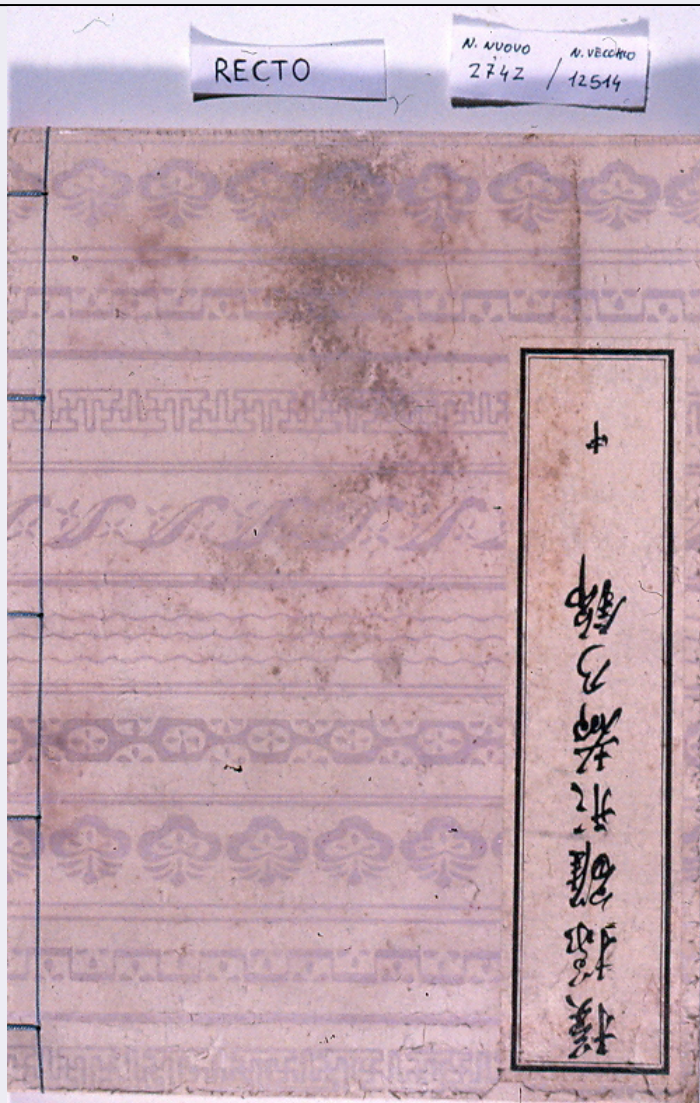 RECTO
N. NUOVO
2742 /
N. VECCHIO
12514
模様雛形都乃錦
中